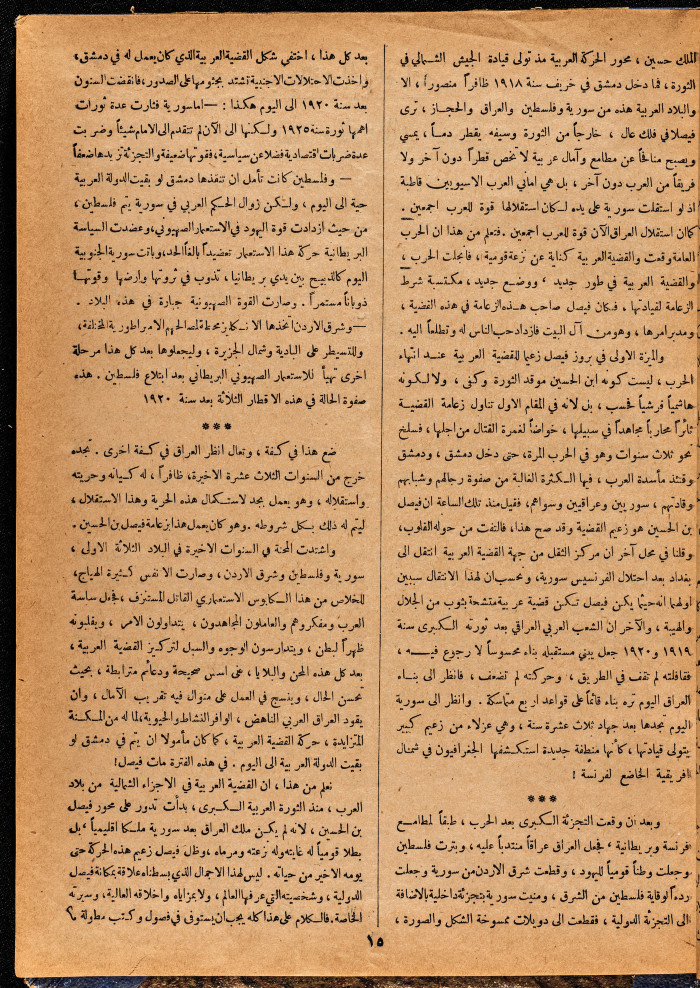 الملك حسين ، محور الحركة العربية مذ تولى قيادة الجيش الشمالي في
الثورة ، فما دخل دمشق في خريف سنة ١٩١٨ ظافراً منصوراً ، الا
والبلاد العربية هذه من سورية وفلسطين والعراق والحجاز ، ترى
فيصلا في فلك عال ، خارجاً من الثورة وسيفه يقطر دمـاً ، يمسي
ويصبح منافحاً عن مطامع وآمال عربية لا تخص قطراً دون آخر ولا
فريقاً من العرب دون آخر ، بل هي اماني العرب الاسيويين قاطبة
اذ لو استقلت سورية على يده لـكان استقلالها قوة للعرب اجمعين .
كما ان استقلال العراق الآن قوة للعرب اجمعين . فتعلم من هذا ان الحرب
العامة وقعت والقضية العربية كناية عن نزعة قومية ، فانجلت الحرب ،
والقضية العربية في طور جديد ، ووضـع جديد ، مكتسبة شرط
الزعامة لقيادتها ، فـكان فيصل صاحب هـذه الزعامة في هذه القضية ،
ومديرامرها ، وهومن آل البيت فازداد حب الناس له وتطلعا اليه .
والميزة الاولى في بروز فيصل زعيما للقضية العربية عنـد انتهاء
الحرب ، ليست كونه ابن الحسين موقد الثورة وكفى ، ولا لـكونه
هاشمياً قرشياً فحسب ، بل لانه في المقام الاول تناول زعامة القضيـة
ثائراً محارباً مجاهداً في سبيلها ، خواضاً لغمرة القتال من اجلها ، فسلخ
نحو ثلاث سنوات وهو في الحرب المرة، حتى دخل دمشق ، ودمشق
وقتئذ مأسدة العرب ، فيها الـكثرة الغالبة من صفوة رجالهم وشبابهم
وقادتهم ، سوريين وعراقيين وسواهم، فقيل منذ تلك الساعة ان فيصل
بن الحسين هو زعيم القضية وقد صح هذا، فالتفت من حوله القلوب،
وقلنا في محل آخر ان مركز الثقل من جهة القضية العربية انتقل الى
بغداد بعد احتلال الفرنسيس سورية، ونحسب ان لهذا الانتقال سببين
اولهما انه حيثما يكـن فيصل تـكن قضية عربية متشحة بثوب من الجلال
والهيبة ، والآخر ان الشعب العربي العراقي بعد ثورته الـكبرى سنة
١٩١٩ و ١٩٢٠ جعل يبني مستقبله بناء محسوساً لا رجوع فيـــه ،
فقافلته لم تقف في الطريق ، وحركته لم تضعف ، فانظر الى بنـاء
العراق اليوم تره بناء قائماً على قواعد اربع متماسكة . وانظر الى سورية
اليوم تجدها بعد جهاد ثلاث عشرة سنة ، وهي عزلاء من زعيم كبير
يتولى قيادتها، كأنها منطقة جديدة استكشفها الجغرافيون في شمـال
افريقية الخاضع لفرنسة !
***
وبعد ان وقعت التجزئة الـكبرى بعد الحرب ، طبقاً لمطامـع
فرنسة وبريطانية ، فجعل العراق عراقاً منتدباً عليه ، وبترت فلسطين
وجعلت وطناً قومياً لليهود ، وقطعت شرق الاردن من سورية وجعلت
ردءاً لوقاية فلسطين من الشرق ، ومنيت سورية بتجزئة داخلية بالاضافة
الى التجزئة الدولية ، فقطعت الى دويلات ممسوخة الشكل والصورة ،
بعد كل هذا ، اختفى شكل القضية العربية الذي كان يعمل له في دمشق،
واخذت الاحتلالات الاجنبية تشتد بجثومها على الصدور، فانقضت السنون
بعد سنة ١٩٢٠ الى اليوم هكذا : – اما سورية فثارت عدة ثورات
اهمها ثورة سنة ١٩٢٥ ولـكنها الى الآن لم تتقدم الى الامام شيئاً وضربت
عدة ضربات اقتصادية فضلا عن سياسية ، فقوتها ضعيفة والتجزئة تزيدها ضعفاً
– وفلسطين كانت تأمل ان تنقذها دمشق لو بقيت الدولة العربية
حية الى اليوم ، ولـكن زوال الحكم العربي في سورية يتم فلسطين ،
من حيث ازدادت قوة اليهود في الاستعمار الصهيوني، وعضدت السياسة
البريطانية حركة هذا الاستعمار تعضيداً بالغاً الحد، وباتت سورية الجنوبية
اليوم كالذبيح بين يدي بريطانيا ، تذوب في ثروتها وارضها وقوتها
ذوباناً مستمراً . وصارت القوة الصهيونية جبارة في هذه البلاد .
– وشرق الاردن اتخذها الانـكليز محطة لمصالحهم الامبراطورية المختلفة،
وللتسيطر على البادية وشمال الجزيرة ، وليجعلوها بعد كل هذا مرحلة
اخرى تهيأ للاستعمار الصهيوني البريطاني بعد ابتلاع فلسطين . هذه
صفوة الحالة في هذه الاقطار الثلاثة بعد سنة ١٩٢٠
***
ضع هذا في كفة ، وتعال انظر العراق في كفة اخرى . تجده
خرج من السنوات الثلاث عشرة الاخيرة، ظافراً ، له كيانه وحريته
واستقلاله ، وهو يعمل بجد لاستـكمال هذه الحرية وهذا الاستقلال ،
ليتم له ذلك بـكل شروطه. وهو كان يعمل هذا بزعامة فيصل بن الحسين .
واشتدت المحنة في السنوات الاخيرة في البلاد الثلاثة الاولى ،
سورية وفلسطين وشرق الاردن ، وصارت الانفس كثيرة الهياج،
للخلاص من هذا الـكابوس الاستعماري القاتل المستنزف، فجعل ساسة
العرب ومفكروهم والعاملون المجاهدون ، يتداولون الامر ، ويقلبونه
ظهراً لبطن ، ويتدارسون الوجوه والسبل لتركيز القضية العربية ،
بعد كل هذه المحن والبلايا ، على اسس صحيحة ودعائم مترابطة ، بحيث
تحسن الحال ، وينسج في العمل على منوال فيه تقريب الآمال ، وان
يقود العراق العربي الناهض ، الوافر النشاط والحيوية، لما له من المـكـنة
المتزايدة ، حركة القضية العربية ، كما كان مأمولا ان يتم في دمشق لو
بقيت الدولة العربية الى اليوم . في هذه الفترة مات فيصل!
نعلم من هذا ، ان القضية العربية في الاجزاء الشمالية من بلاد
العرب ، منذ الثورة العربية الـكبرى، بدأت تدور على محور فيصل
بن الحسين ، لانه لم يكـن ملك العراق بعد سورية ملـكا اقليمياً ، بل
بطلا قومياً له غايته وله نزعته ومرماه ، وظل فيصل زعيم هذه الحركة حتى
يومه الاخير من حياته . ليس لهذا الاجمال الذي بسطناه علاقة بمكانة فيصل
الدولية ، وشخصيته التي عرفها العالم ، ولا بمزاياه واخلاقه العالية، وسيرته
الخاصة . فالـكلام على هذا كله يجب ان يستوفى في فصول وكتب مطولة
١٥